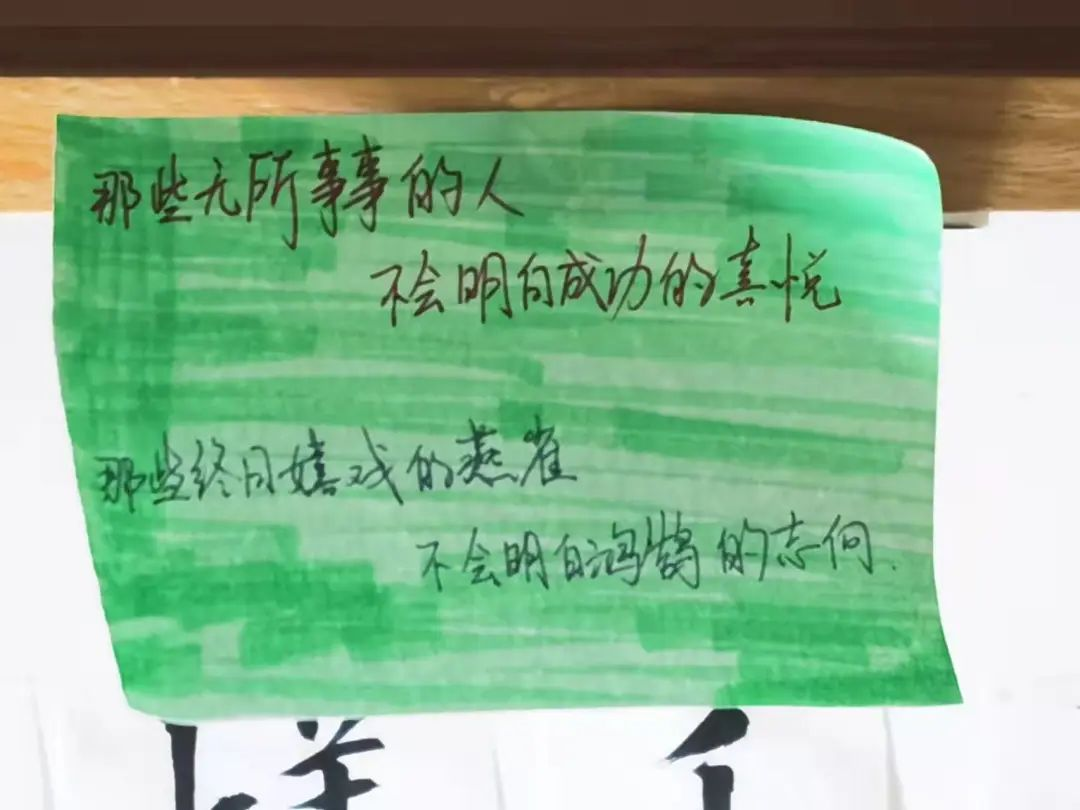 那些无所事事的人
不会明白成功的喜悦
那些终日嬉戏的燕雀
不会明白鸿鹄的志向.